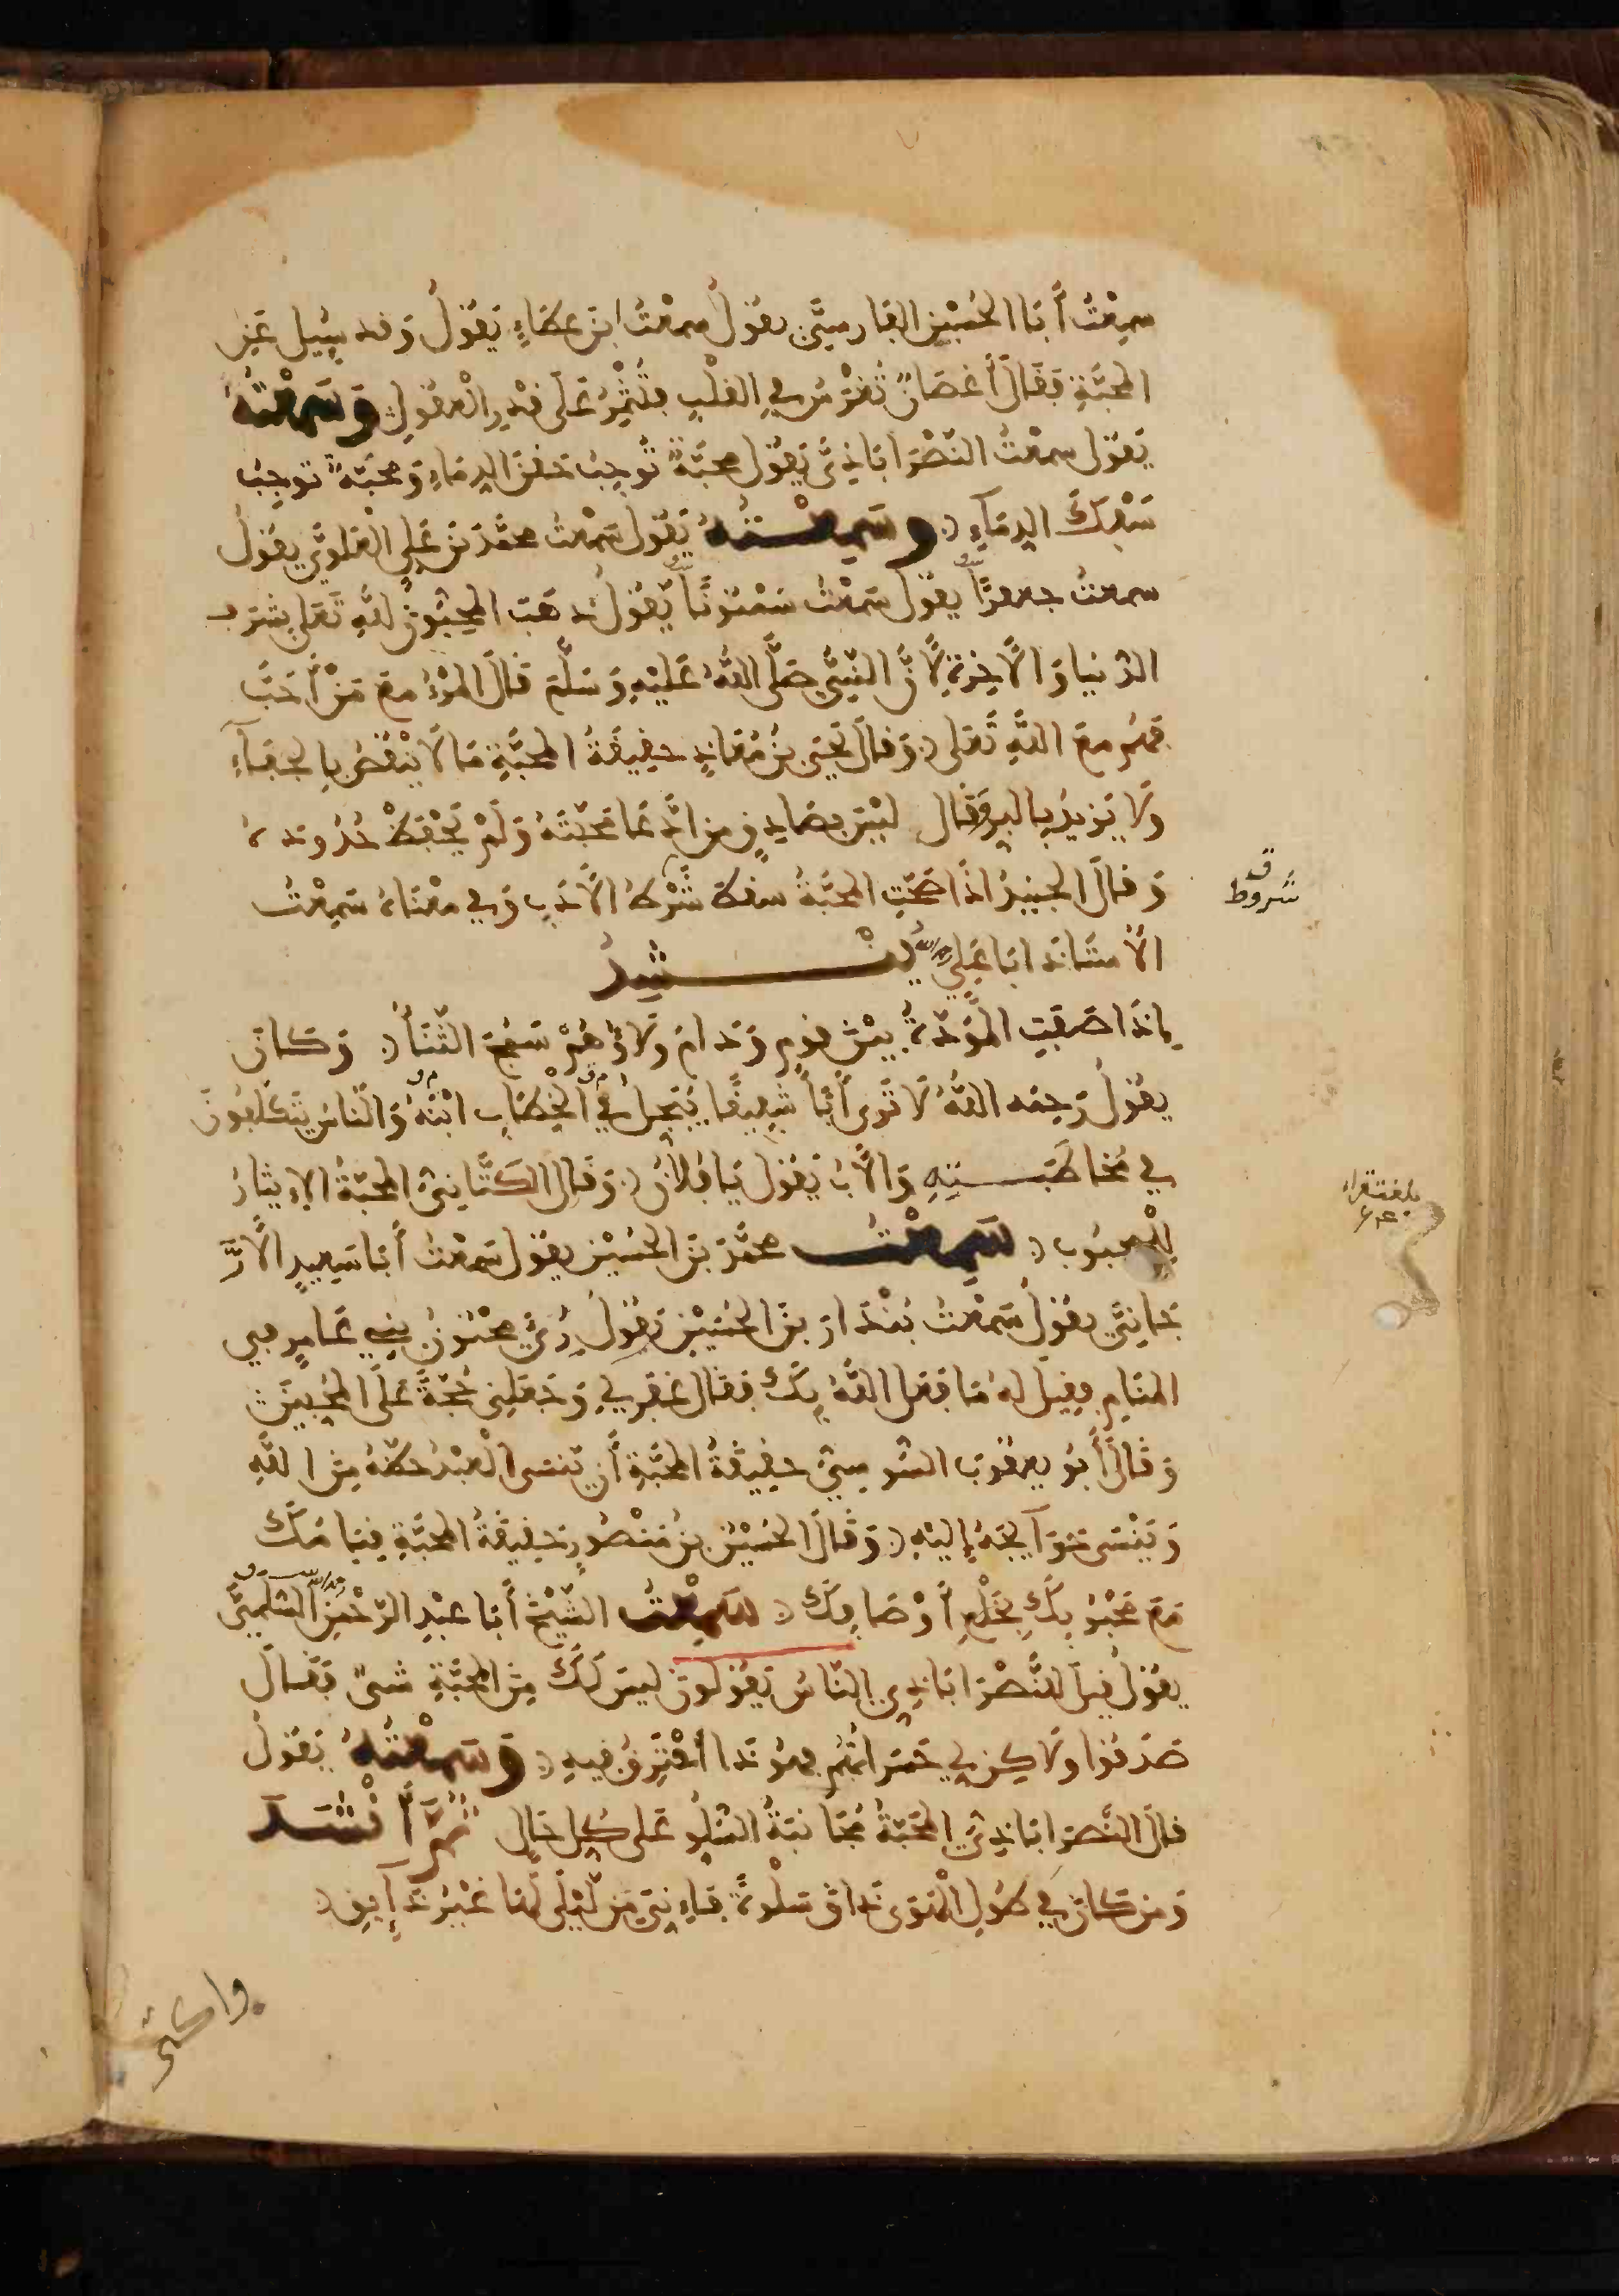 سَمِعْتُ أَبَا الْحُسَيْنِ الْفَارِسِيَّ يَقُولُ سَمِعْتُ ابْنَ عَطَاءٍ يَقُولُ وَقَدْ سُئِلَ عَنِ
الْمَحَبَّةِ فَقَالَ أَغْصَانٌ تُغْرَسُ فِي الْقَلْبِ فَتُثْمِرُ عَلَى قَدْرِ الْعُقُولِ وَسَمِعْتُهُ
يَقُولُ سَمِعْتُ النَّصْرَابَاذِيَّ يَقُولُ مَحَبَّةٌ تُوجِبُ حَقْنَ الدِّمَاءِ وَمَحَبَّةٌ تُوجِبُ
سَفْكَ الدِّمَاءِ وَسَمِعْتُهُ يَقُولُ سَمِعْتُ مُحَمَّدَ بْنَ عَلِيٍّ الْعَلَوِيَّ يَقُولُ
سَمِعْتُ جَعْفَرًا يَقُولُ سَمِعْتُ سَمْنُونًا يَقُولُ ذَهَبَ الْمُحِبُّونَ لِلَّهِ تَعَلَى بِشَرَفِ
الدُّنْيَا وَالْآخِرَةِ لِأَنَّ النَّبِيَّ صَلَّى اللَّهُ عَلَيْهِ وَسَلَّمَ قَالَ الْمَرْءُ مَعَ مَنْ أَحَبَّ
فَهُمْ مَعَ اللَّهِ تَعَلَى وَقَالَ يَحْيَى بْنُ مُعَاذٍ حَقِيقَةُ الْمَحَبَّةِ مَا لَا يَنْقُصُ بِالْجَفَاءِ
وَلَا يَزِيدُ بِالْبِرِّ وَقَالَ لَيْسَ بِصَادِقٍ مَنِ ادَّعَا مَحَبَّتَهُ وَلَمْ يَحْفَظْ حُدُودَهُ
وَقَالَ الْجُنَيْدُ إِذَا صَحَّتِ الْمَحَبَّةُ سَقَطَ شَرْطُ الْأَدَبِ وَفِي مَعْنَاهُ سَمِعْتُ
ق
شروط
الْأُسْتَاذَ أَبَا عَلِيٍّ رحمه الله يُنْشِدُ
إِذَا صَفَتِ الْمَوَدَّةُ بَيْنَ قَوْمٍ وَدَامَ وَلَاؤُهُمْ سَمُجَ الثَّنَاءُ وَكَانَ
يَقُولُ رَحِمَهُ اللَّهُ لَا تَرَى أَبًا شَفِيقًا يُبَجِّلُ فِي الْخِطَابِ ابْنَهُ وَالنَّاسُ يَتَكَلَّفُونَ
فِي مُخَاطَبَتِهِ وَالْأَبُ يَقُولُ يَا فُلَانُ وَقَالَ الْكَتَّانِيُّ الْمَحَبَّةُ الْإِيثَارُ
لِلْمَحْبُوبِ سَمِعْتُ مُحَمَّدَ بْنَ الْحُسَيْنِ يَقُولُ سَمِعْتُ أَبَا سَعِيدٍ الْأَرَّ
جَانِيَّ يَقُولُ سَمِعْتُ بُنْدَارَ بْنَ الْحُسَيْنِ يَقُولُ رُئِيَ مَجْنُونُ بَنِي عَامِرٍ فِي
الْمَنَامِ فَقِيلَ لَهُ مَا فَعَلَ اللَّهُ بِكَ فَقَالَ غَفَرَ لِي وَجَعَلَنِي حُجَّةً عَلَى الْمُحِبِّينَ
وَقَالَ أَبُو يَعْقُوبَ السُّوسِيُّ حَقِيقَةُ الْمَحَبَّةِ أَنْ يَنْسَى الْعَبْدُ حَظَّهُ مِنَ اللَّهِ
وَيَنْسَى حَوَائِجَهُ إِلَيْهِ وَقَالَ الْحُسَيْنُ بْنُ مَنْصُورٍ حَقِيقَةُ الْمَحَبَّةِ قِيَامُكَ
مَعَ مَحْبُوبِكَ بِخَلْعِ أَوْصَافِكَ سَمِعْتُ الشَّيْخَ أَبَا عَبْدِ الرَّحْمَنِ رحمه الله السُّلَمِيَّ
يَقُولُ قِيلَ لِلنَّصْرَابَاذِي النَّاسُ يَقُولُونَ لَيْسَ لَكَ مِنَ الْمَحَبَّةِ شَيْءٌ فَقَالَ
صَدَقُوا وَلَاكِنْ لِي حَسَرَاتُهُمْ فَهُوَ ذَا أَحْتَرِقُ فِيهِ وَسَمِعْتُهُ يَقُولُ
قَالَ النَّصْرَابَاذِيُّ الْمَحَبَّةُ مُجَانَبَةُ السُّلُوِّ عَلَى كُلِّ حَالٍ ثُمَّ أَنْشَدَ
وَمَنْ كَانَ فِي طُولِ الْهَوَى ذَاقَ سَلْوَةً فَإِنِّيَ مِنْ لَيْلَى لَهَا غَيْرُ ذَائِقِ